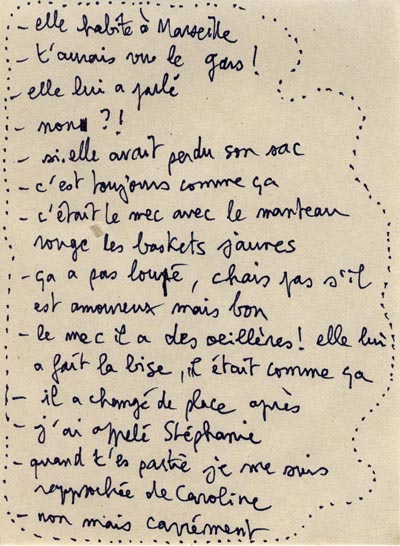 - elle habite à Marseille
- t'aurais vu le gars !
- elle lui a parlé
- non ?!
- si. elle avait perdu son sac
- c'est toujours comme ça
- c'était le mec avec le manteau
rouge les baskets jaunes
- ça a pas loupé, chais pas s'il
est amoureux mais bon
- le mec il a des oeillères ! elle lui
a fait la bise, il était comme ça
- il a changé de place après
- j'ai appelé Stéphanie
- quand t'es partie je me suis
rapprochée de Caroline
- non mais carrément